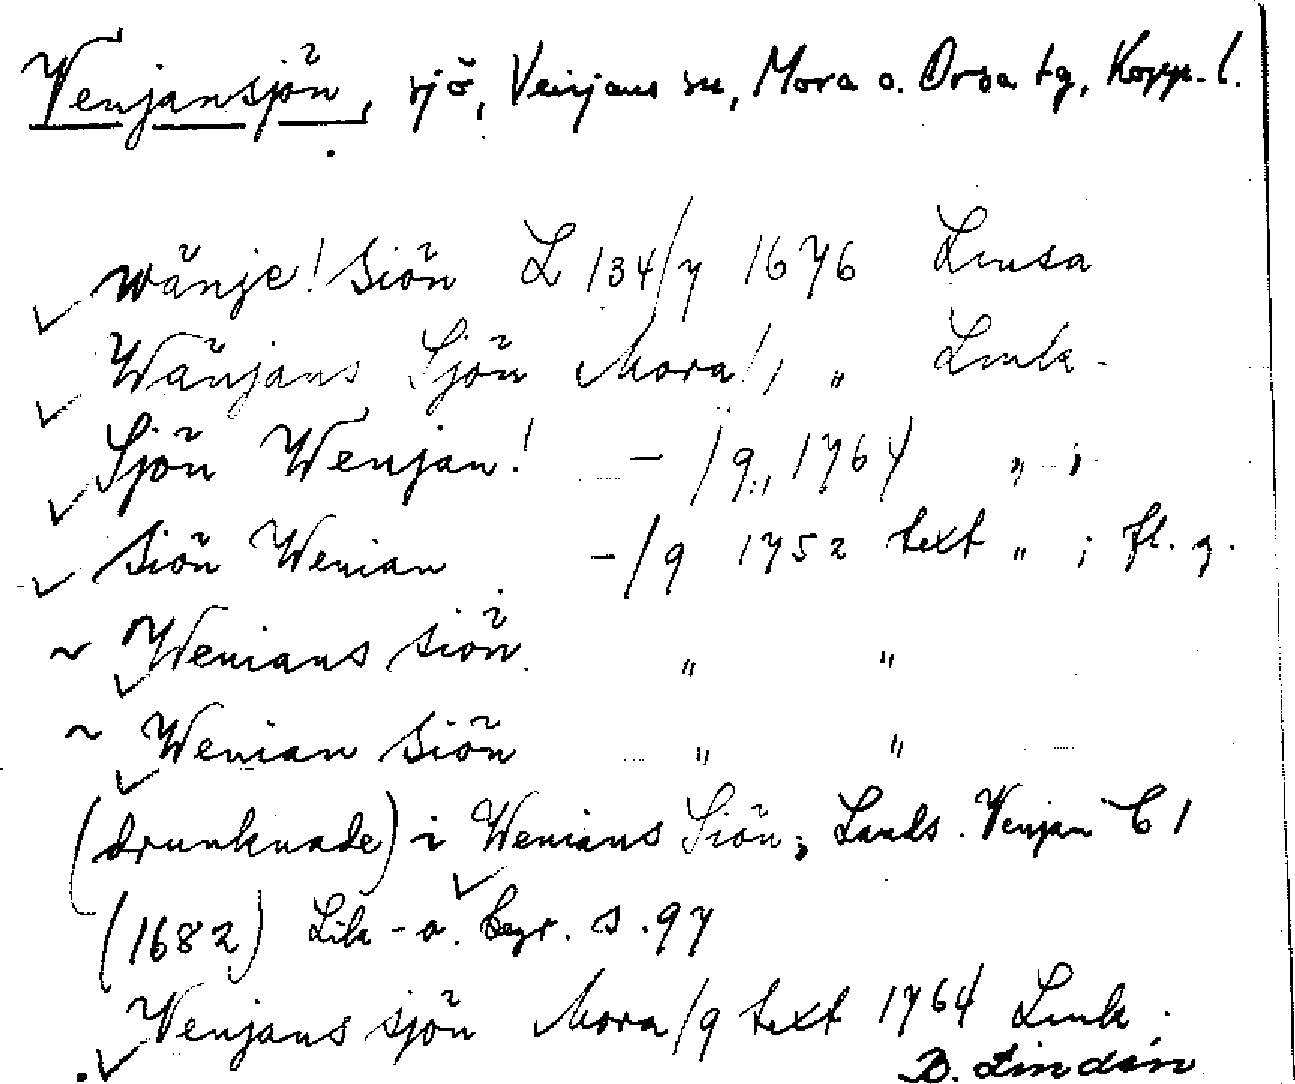 Venjansjön, sjö, Venjans sn, Mora o. Orsa tg, Kopp. l.
Wänje! Siön L 134/7 1676 Lmsa
Wänjans Sjön Mora 1, " Lmk.
Sjön Wenjan! - /9, 1764 " ;
Siön Wenian - /9 1752 text " ; fl. g.
~ Wenians siön " "
~ Wenian siön " "
(drunknade) i Wenians Siön; Lands. Venjan C 1
(1682) Lik- o. begr. s. 97
Wenjans sjön Mora /9 text 1764 Lmk.
B. Lindén